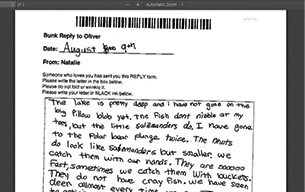 Automatic Zoom
Bunk Reply to Oliver
Date: August 9th
From: Natalie
Someone who loves you has sent you this REPLY form.
Please write neatly with BLACK ink below.
Please do not fold or wrinkle it.
Please write your letter in the box below.
The lake is pretty deep and I have not gone on the
big pillow blob yet. The fish dont nibble at my
toes, but the little salamanders do. I have gone
to the Polar bear plunge twice. The
do look like Salamanders but smaller. we
catch them with our hands. They are
fast, sometimes we catch them with buckets.
They do not have cray fish. we have seen
deer almost every time we